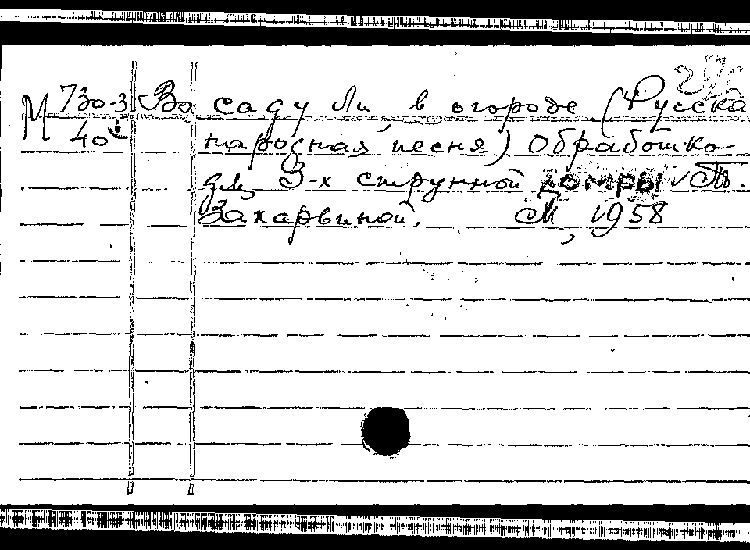 М 730-3 Во саду ли, в огороде (Русска
40 народная песня) Обработко-
для 3-х струнной домры Т.
Захарьиной. М, 1958